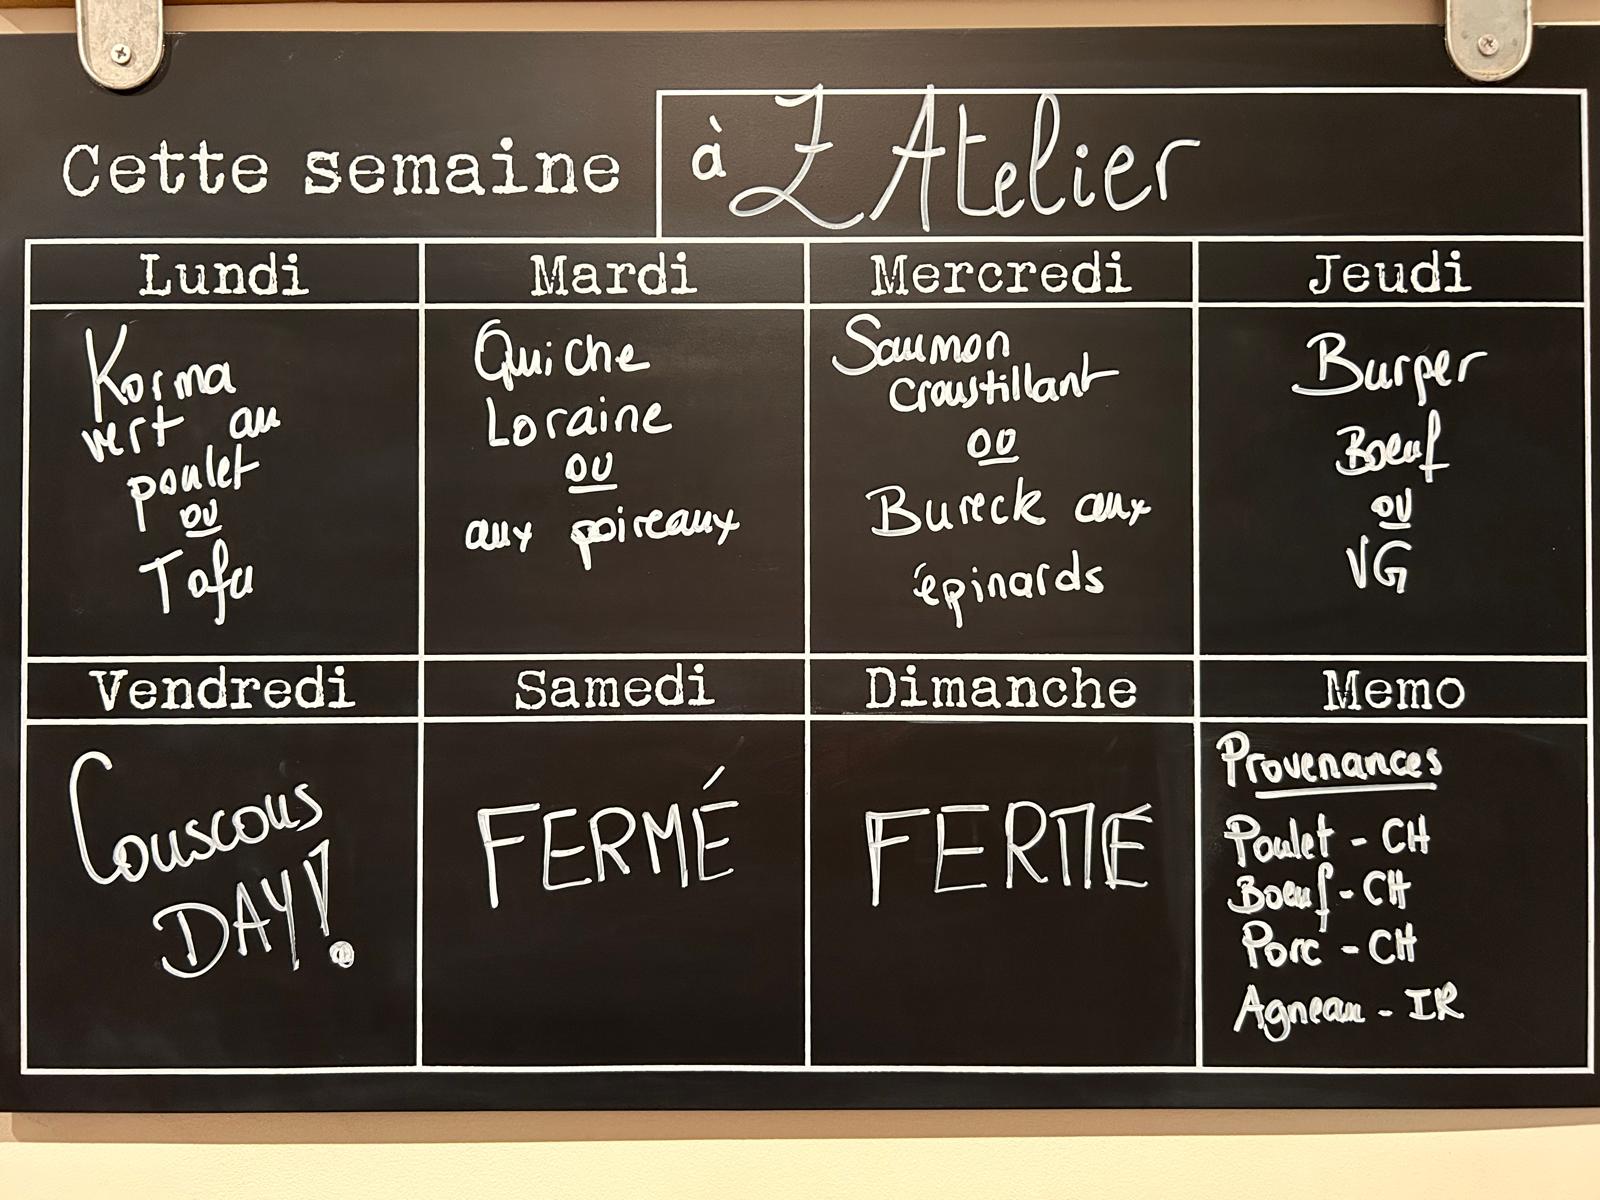 Cette semaine à L'Atelier
Lundi
Korma
vert au
poulet
ou
Tofu
Mardi
Quiche
Loraine
ou
aux poireaux
Mercredi
Saumon
croustillant
ou
Bureck aux
épinards
Jeudi
Burger
Boeuf
ou
VG
Vendredi
Couscous
DAY!
Samedi
FERMÉ
Dimanche
FERMÉ
Memo
Provenances
Poulet - CH
Boeuf - CH
Porc - CH
Agneau - IR